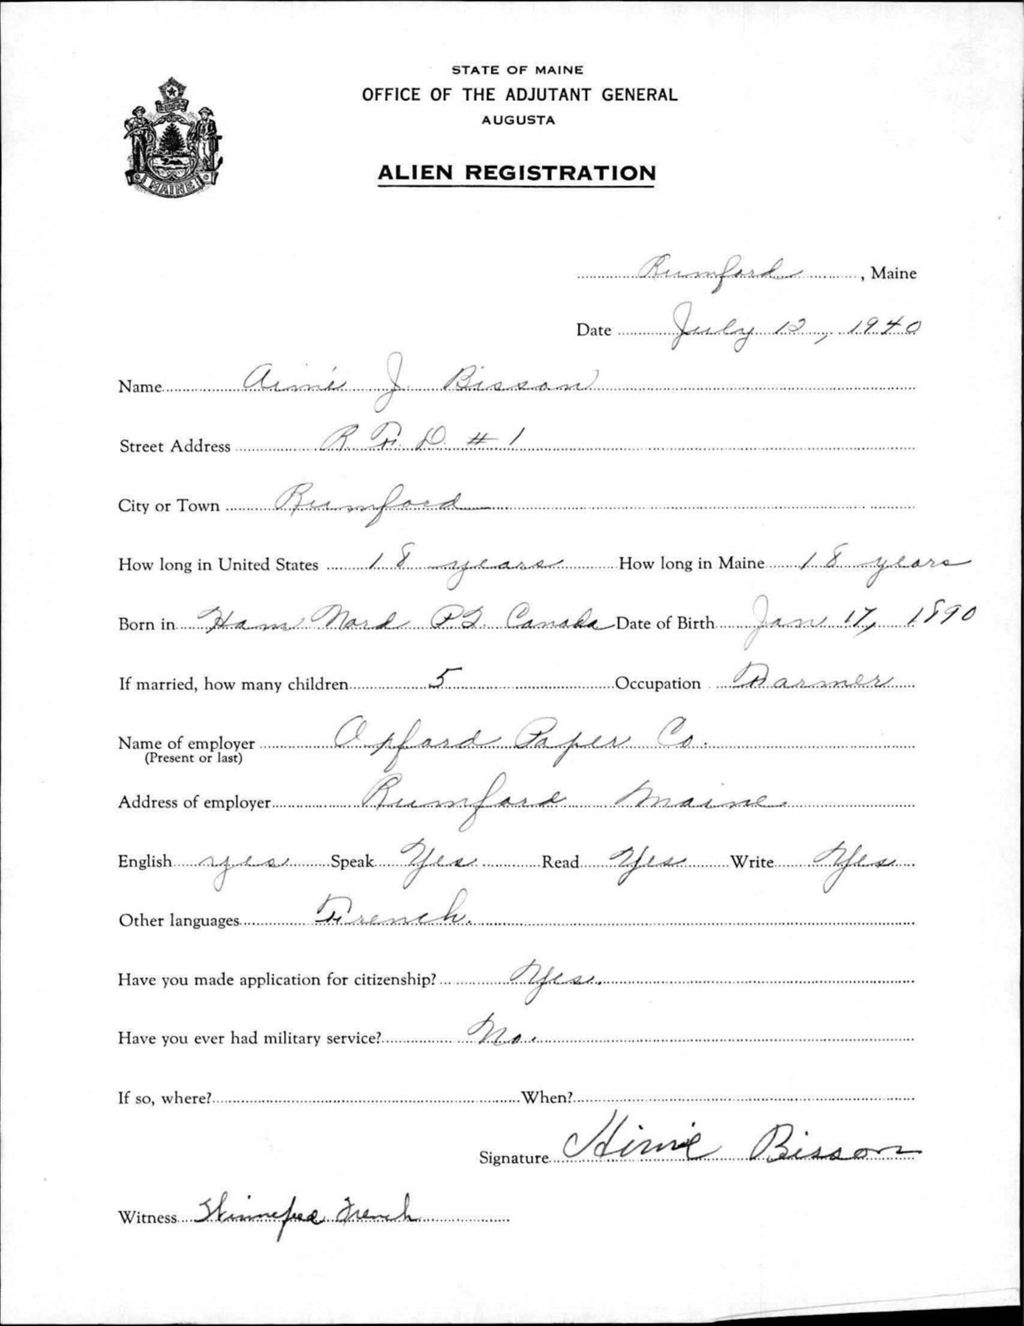 STATE OF MAINE
OFFICE OF THE ADJUTANT GENERAL
AUGUSTA
ALIEN REGISTRATION
MAINE
Rumford, Maine
Date July 12, 1940
Name Aimé J. Bisson
Street Address R. F. D. #1
City or Town Rumford
How long in United States 18 years How long in Maine 18 years
Born in Ham Nord P.Q. Canada Date of Birth Jan 17, 1890
If married, how many children 5 Occupation Farmer
Name of employer Oxford Paper Co.
(Present or last)
Address of employer Rumford Maine
English yes Speak Yes Read Yes Write Yes
Other languages French.
Have you made application for citizenship? Yes.
Have you ever had military service? No.
If so, where? When?
Signature Aimé Bisson
Witness Winnefred French